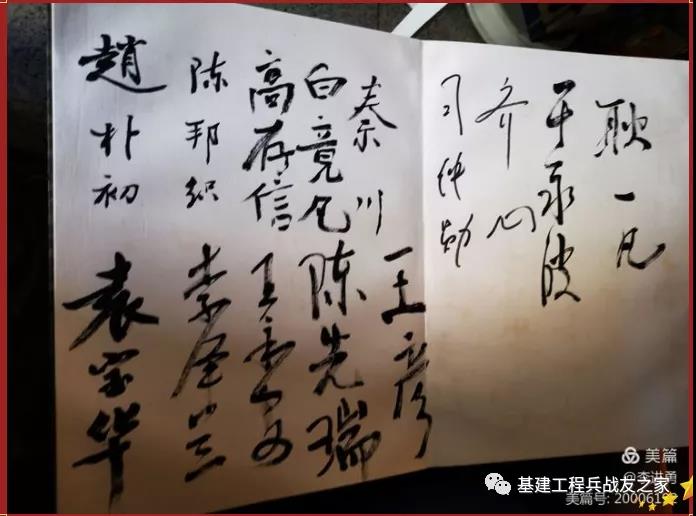 耿一凡
于永波
齐心
习仲勋
秦川
王彦
白竟凡
陈先瑞
高存信
王
陈邦织
李
趙朴初
袁宝华
美篇
@李进勇
基建工程兵战友之家
美篇号: 200061